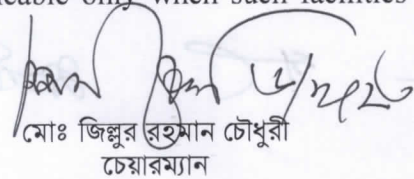 only when such facilities
মোঃ জিল্লুর রহমান চৌধুরী
চেয়ারম্যান